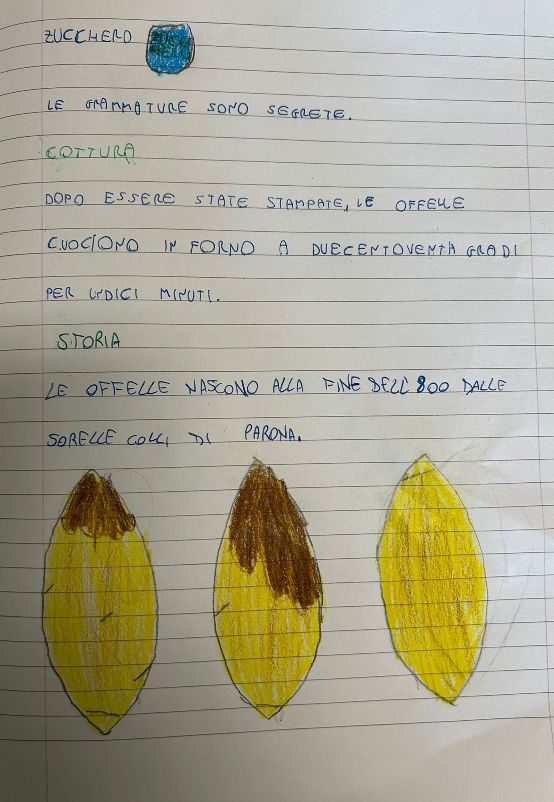 ZUCCHERO
LE GRAMMATURE SONO SEGRETE.
COTTURA
DOPO ESSERE STATE STAMPATE, LE OFFELLE
CUOCIONO IN FORNO A DUECENTOVENTA GRADI
PER UNDICI MINUTI.
STORIA
LE OFFELLE NASCONO ALLA FINE DELL'800 DALLE
SORELLE COLLI DI PARONA.